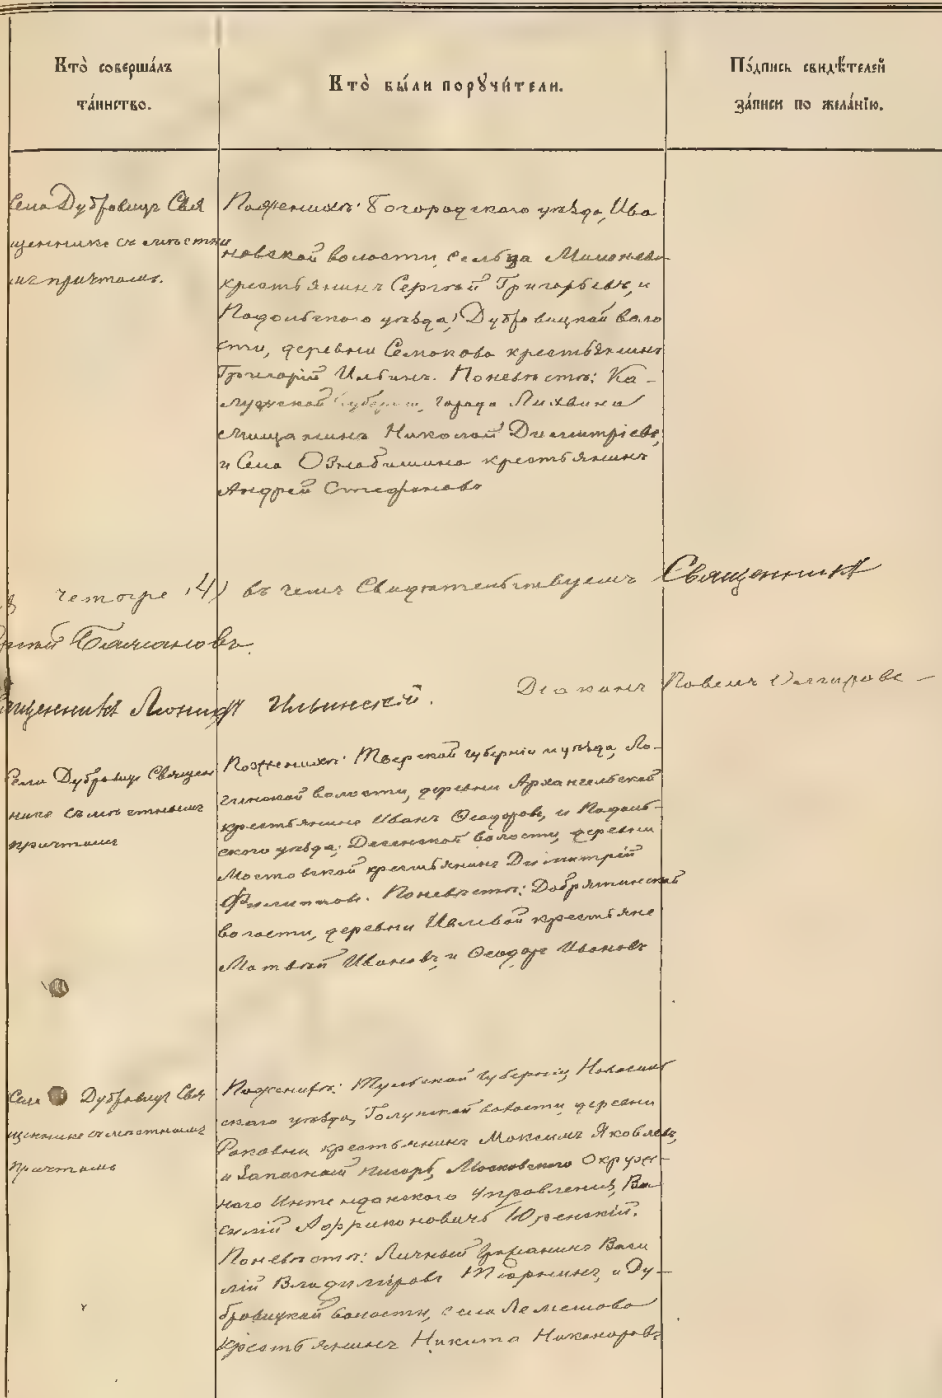 Кто̀ соверша́лъ
та́инство.
Кто̀ бы́ли порꙋчи́тели.
По́дпись свидѣ́телей
за́писи по жела́нїю.
Села Дубровицъ Свя
щенникъ съ местны
мъ причтомъ.
Поженихѣ: Богородскаго уѣзда, Ива
новской волости, сельца
крестьянинъ Сергѣй Григорьевъ, и
Подольскаго уѣзда, Дубровицкой воло
сти, деревни Беляево крестьянинъ
Григорій Ильинъ. Поневѣстѣ: Ка-
лужской губерніи, города Лихвина
мѣщанинъ Николай Димитріевъ,
и Села Ознобишина крестьянинъ
Андрей Стефановъ
четыре (4) въ чемъ Свидѣтельствуемъ Священникъ
Священникъ Леонидъ Ильинскій. Діаконъ Павелъ
Села Дубровицъ Священ
никъ съ мѣстнымъ
причтомъ
Поженихѣ: Тверской губерніи и уѣзда, Ло-
гиновской волости, деревни Архангельской
крестьянинъ Иванъ Ѳеодоровъ, и Подоль-
скаго уѣзда, Десенской волости, деревни
Мостовской крестьянинъ Димитрій
Филипповъ. Поневѣстѣ: Добрятинской
волости, деревни Ивлевой крестьяне
Матвѣй Ивановъ, и Ѳеодоръ Ивановъ
Села Дубровицъ Свя
щенникъ съ мѣстнымъ
причтомъ
Поженихѣ: Тульской губерніи, Новосиль
скаго уѣзда, Голунской волости, деревни
Раковки крестьянинъ Максимъ Яковлевъ,
и Запасной писарь, Московскаго Окруж-
наго Интенданскаго Управленія, Ва
силій Африконовичъ Юренскій.
Поневѣстѣ: Личный Гражданинъ Васи
лій Владиміровъ Тюринъ, и Ду-
бровицкой волости, села Лемешова
Крестьянинъ Никита Никаноровъ